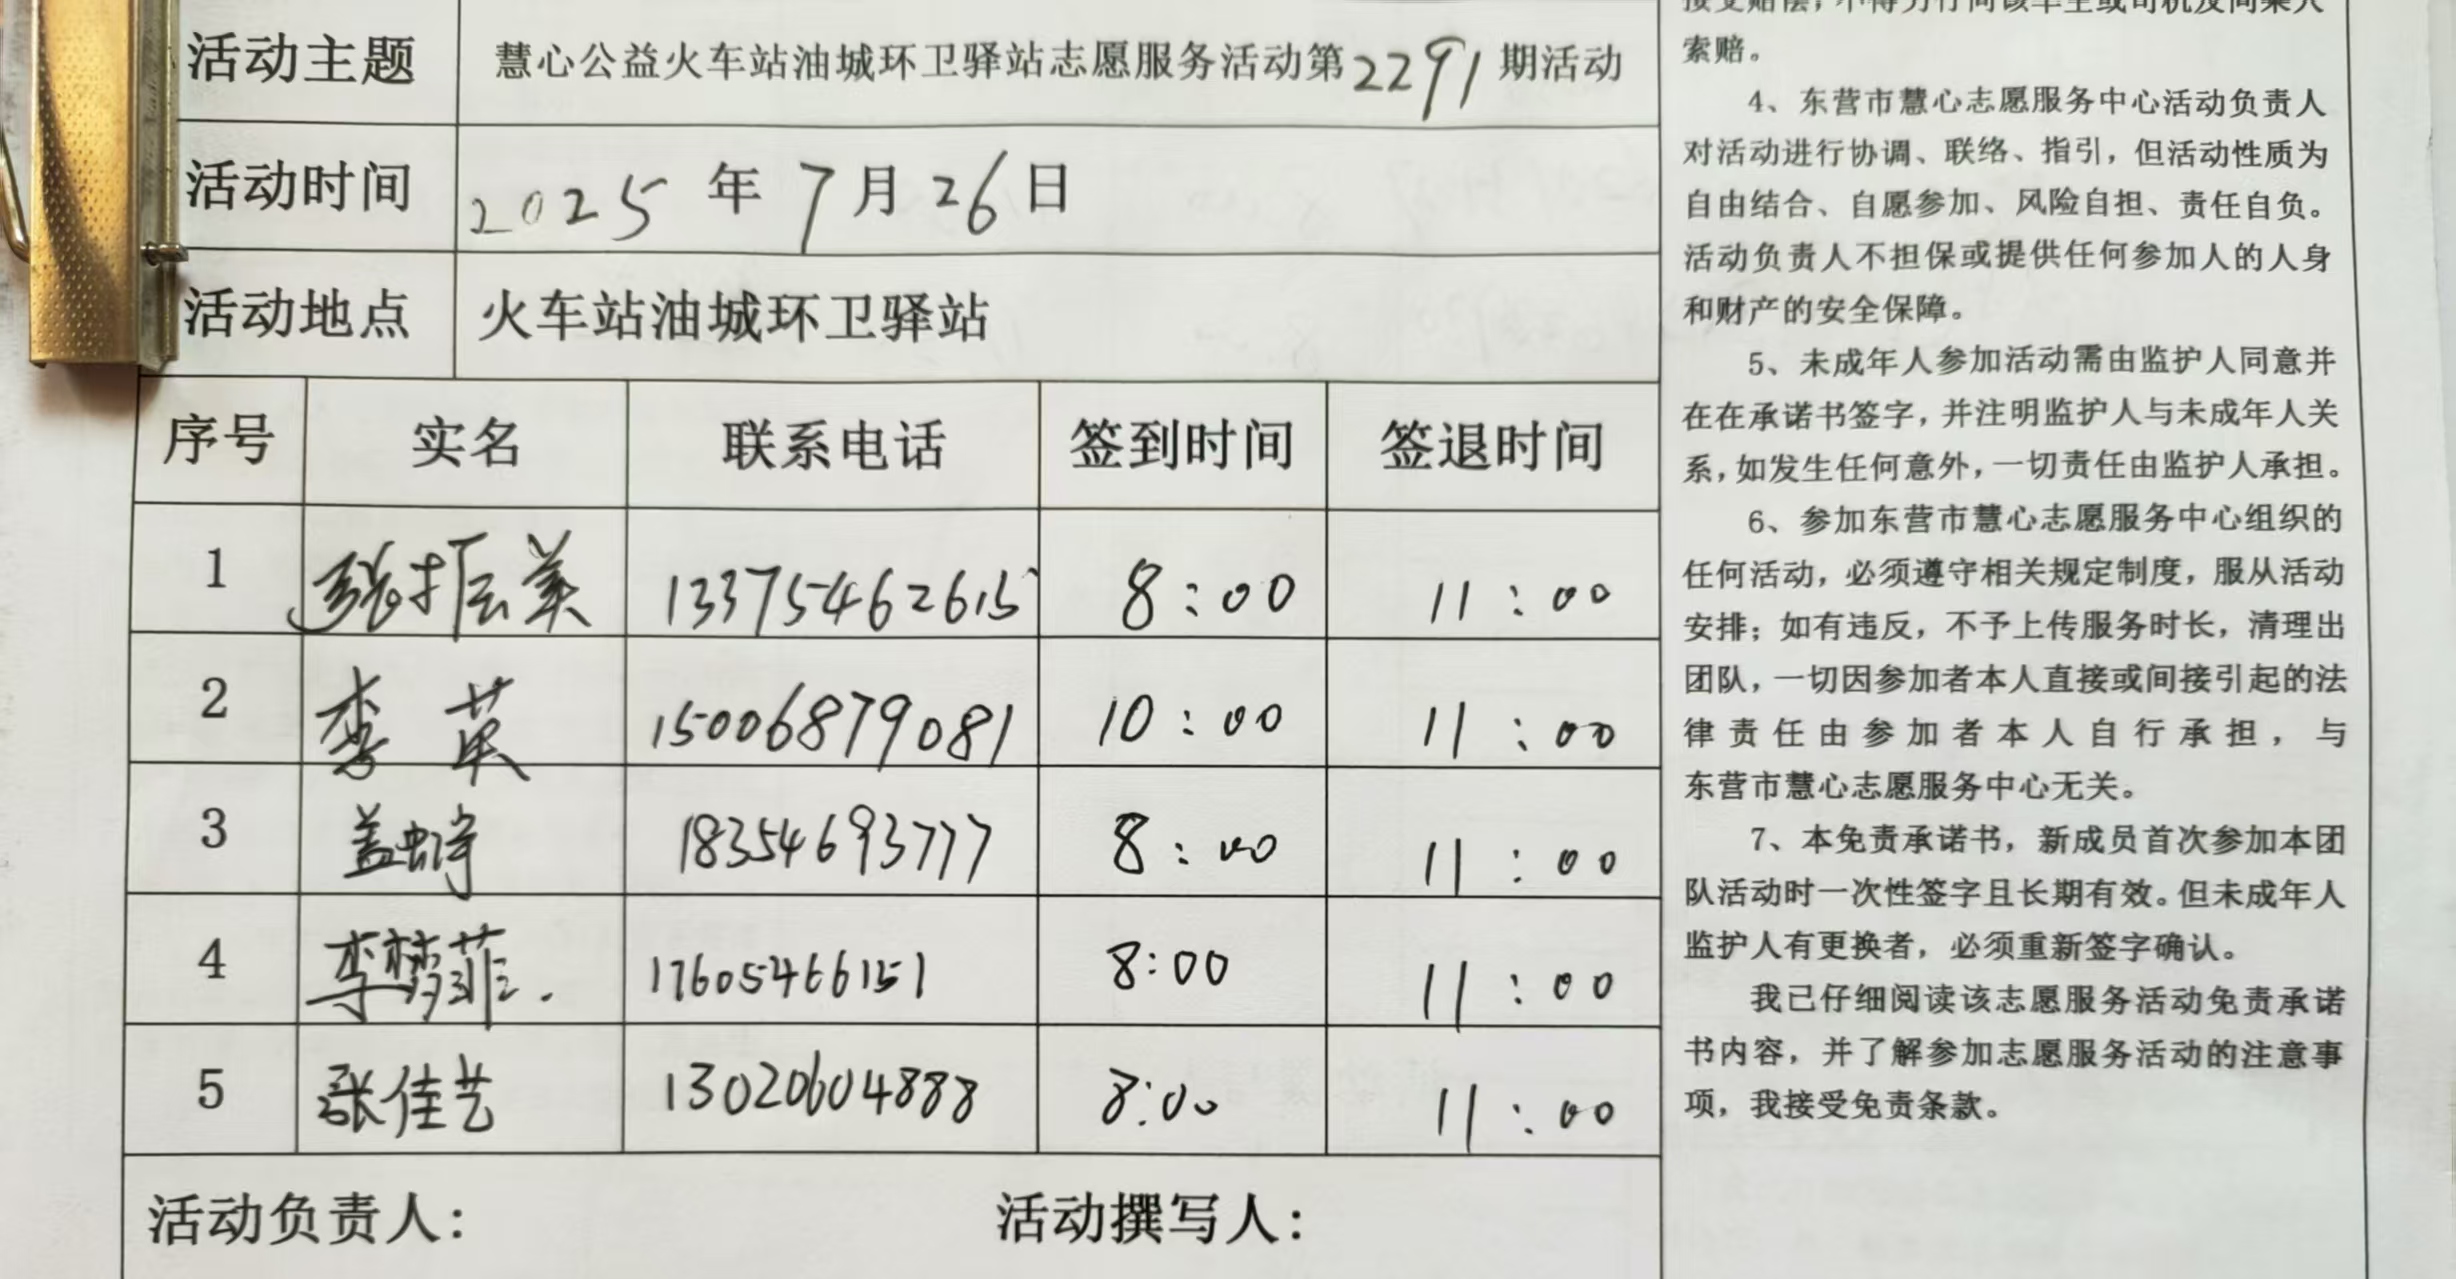 活动主题 慧心公益火车站油城环卫驿站志愿服务活动第2291期活动
活动时间 2025年7月26日
活动地点 火车站油城环卫驿站
序号 实名 联系电话 签到时间 签退时间
1 张振美 13375462615 8:00 11:00
2 李英 15006879081 10:00 11:00
3 盖 18354693777 8:00 11:00
4 李梦菲 17605466151 8:00 11:00
5 张佳艺 13020604888 8:00 11:00
活动负责人: 活动撰写人:
接受赔偿，不得另行向该车主或司机及同乘人
索赔。
4、东营市慧心志愿服务中心活动负责人
对活动进行协调、联络、指引，但活动性质为
自由结合、自愿参加、风险自担、责任自负。
活动负责人不担保或提供任何参加人的人身
和财产的安全保障。
5、未成年人参加活动需由监护人同意并
在在承诺书签字，并注明监护人与未成年人关
系，如发生任何意外，一切责任由监护人承担。
6、参加东营市慧心志愿服务中心组织的
任何活动，必须遵守相关规定制度，服从活动
安排；如有违反，不予上传服务时长，清理出
团队，一切因参加者本人直接或间接引起的法
律责任由参加者本人自行承担，与
东营市慧心志愿服务中心无关。
7、本免责承诺书，新成员首次参加本团
队活动时一次性签字且长期有效。但未成年人
监护人有更换者，必须重新签字确认。
我已仔细阅读该志愿服务活动免责承诺
书内容，并了解参加志愿服务活动的注意事
项，我接受免责条款。